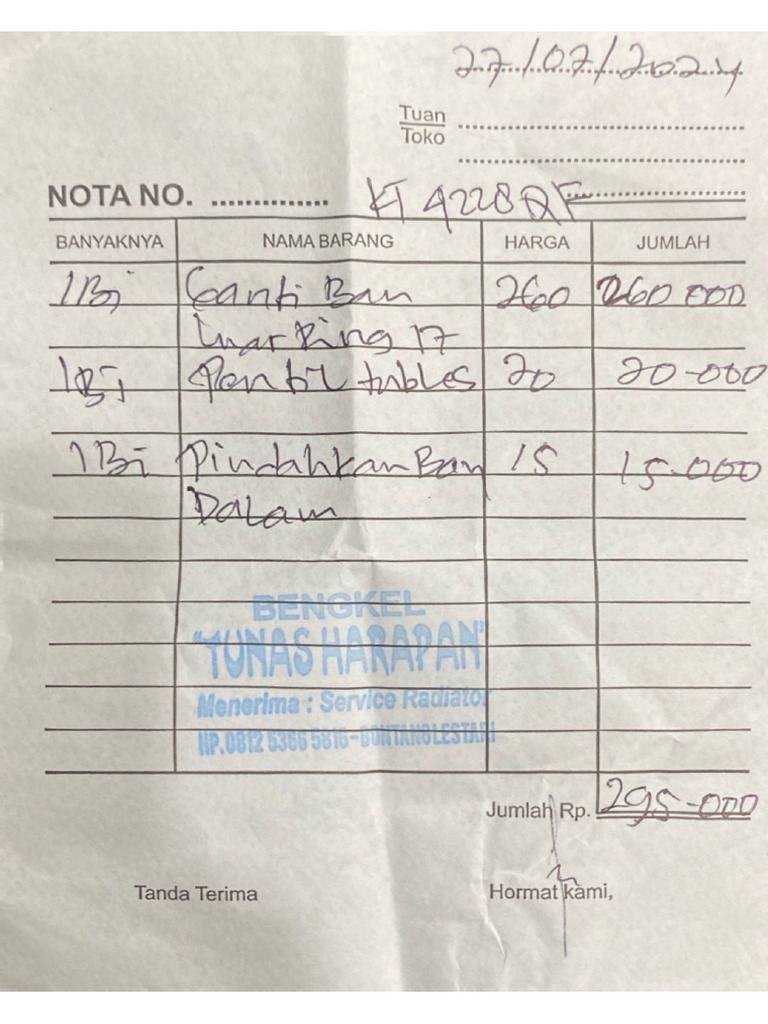 27/07/2024
Tuan
Toko
NOTA NO. .............. KT 4228 QF
BANYAKNYA NAMA BARANG HARGA JUMLAH
1 Bj Ganti Ban 260 260 000
Luar Ring 17
1 Bj Pentil tubles 20 20-000
1 Bj Pindahkan Ban 15 15-000
Dalam
BENGKEL
"TUNAS HARAPAN"
Menerima : Service Radiator
HP. 0812 5366 5816-BONTANG LESTARI
Jumlah Rp. 295-000
Tanda Terima Hormat kami,